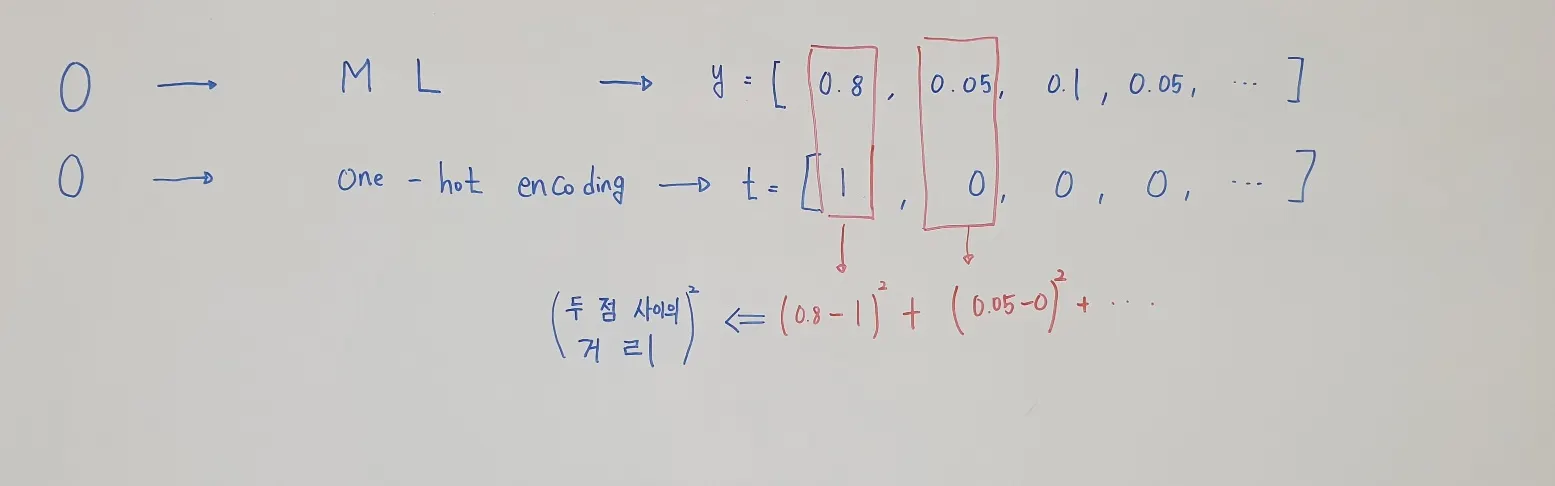 0 → M L → y = [ 0.8 , 0.05, 0.1 , 0.05, ... ]
0 → One - hot encoding → t = [ 1 , 0, 0 , 0 , ... ]
(두 점 사이의 거리)² ⇐ (0.8 - 1)² + (0.05-0)² + ....